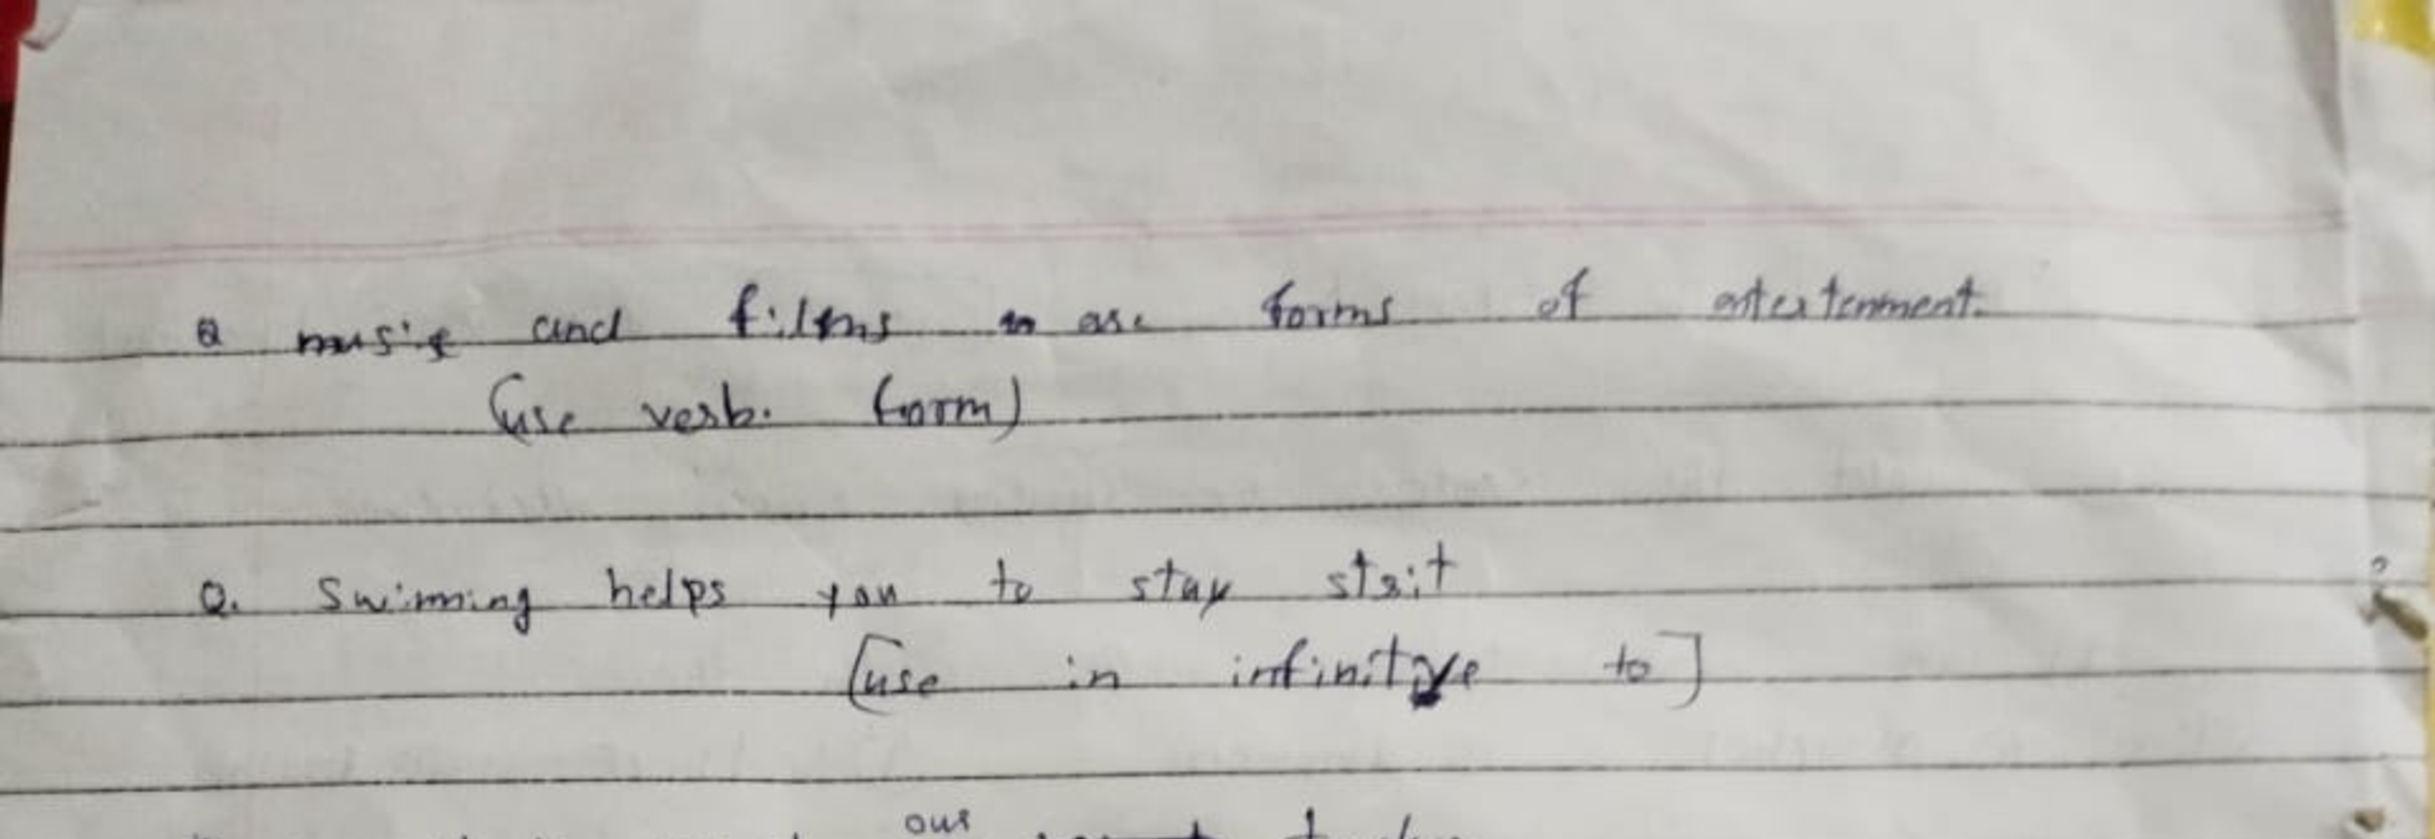 Q music and films are forms of entertenment.
(use verb. form)
Q. Swimming helps you to stay
[use in infinitive to]
our